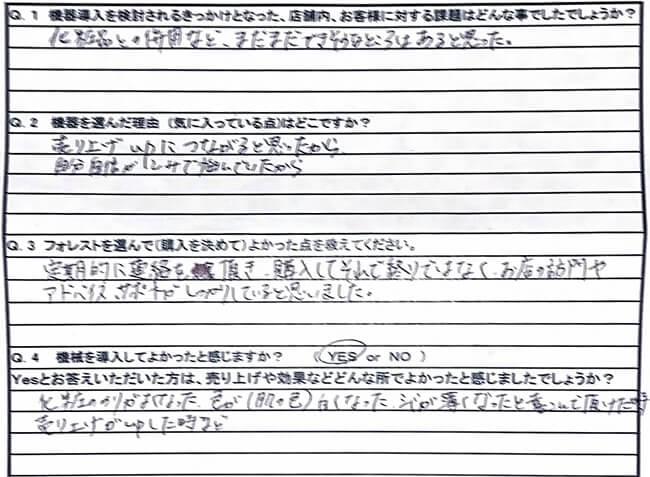 Q. 1 機器導入を検討されるきっかけとなった、店舗内、お客様に対する課題はどんな事でしたでしょうか?
化粧品との併用など、まだまだできそうなところはあると思った。
Q. 2 機器を選んだ理由 (気に入っている点)はどこですか?
売り上げupにつながると思ったから
自分自身がシミで悩んでいたから
Q. 3 フォレストを選んで(購入を決めて)よかった点を教えてください。
定期的に連絡を頂き、購入してそれで終りではなく、お店の訪門や
アドバイス、サポートがしっかりしていると思いました。
Q. 4 機械を導入してよかったと感じますか? ( YES or NO )
Yesとお答えいただいた方は、売り上げや効果などどんな所でよかったと感じましたでしょうか?
化粧のりがよくなった、色が(肌の色)白くなった、シミが薄くなったと喜んで頂けた時
売り上げがupした時など